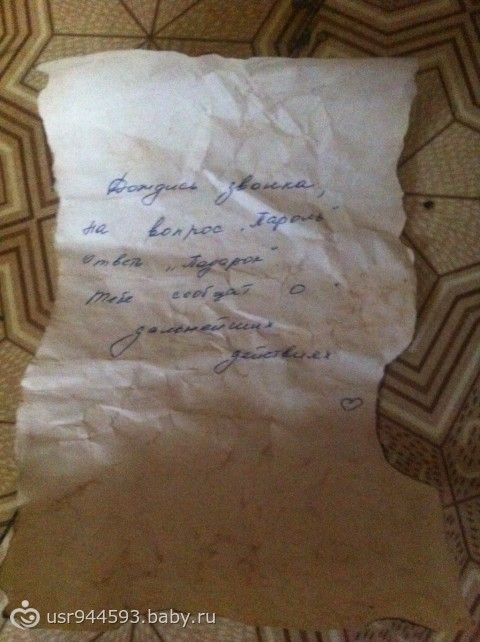 Дождись звонка,
на вопрос „Пароль"
ответь „Подарок"
тебе сообщат о
дальнейших
действиях
usr944593.baby.ru